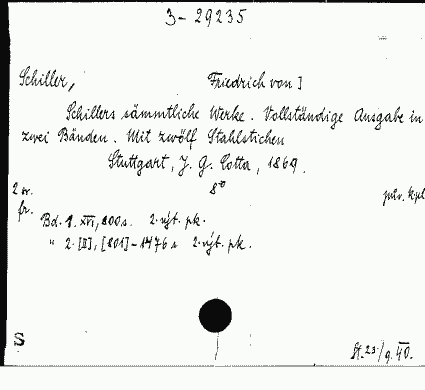 3-29235
Schiller, Friedrich von]
Schillers sämmtliche Werke. Vollständige Ausgabe in
zwei Bänden. Mit zwölf Stahlstichen
Stuttgart, J. G. Cotta, 1869.
2 sv. 8° pův. kpl
fr.
Bd. 1. XVI, 800 s. 2. výt. pk.
" 2. [II], [801]-1476 s 2. výt. pk.
S
St. 23/9. 40.